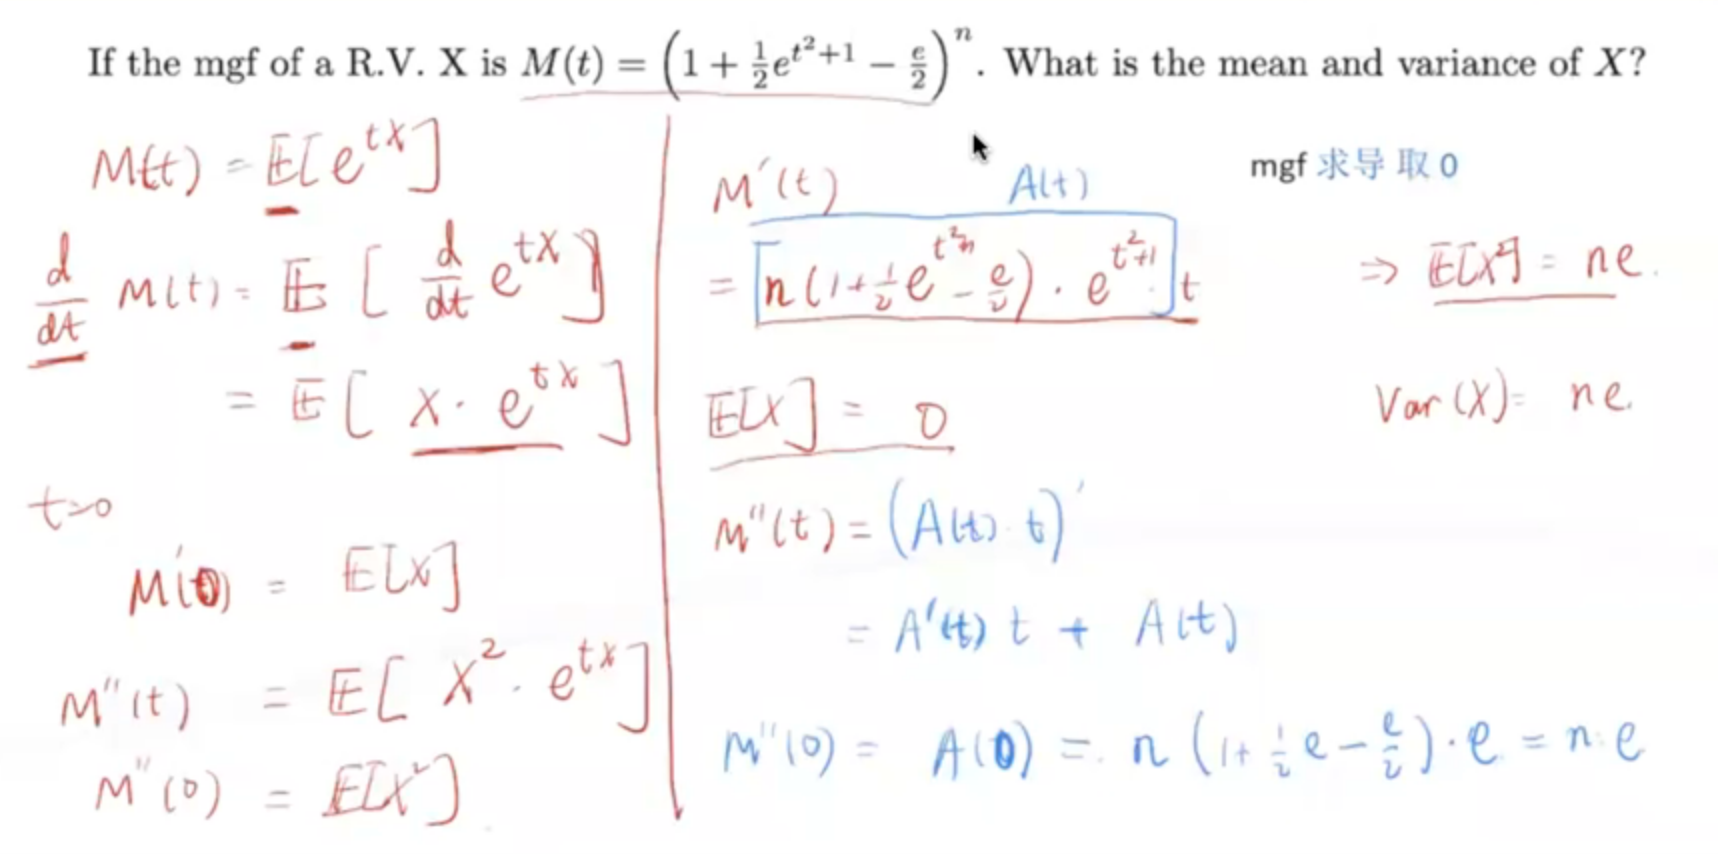 If the mgf of a R.V. X is M(t) = (1 + ½e^{t²+1} − e/2)^n. What is the mean and variance of X?
M(t) = E[e^{tX}]
d/dt M(t) = E[d/dt e^{tX}]
= E[X · e^{tX}]
t=0
M'(0) = E[X]
M''(t) = E[X² · e^{tX}]
M''(0) = E[X²]
M'(t) A(t)
= [n(1+½e^{t²+1} − e/2) · e^{t²+1}] t
E[X] = 0
M''(t) = (A(t) · t)'
= A'(t) t + A(t)
M''(0) = A(0) = n(1+½e − e/2) · e = n · e
mgf 求导 取 0
⇒ E[X²] = ne.
Var(X) = ne.